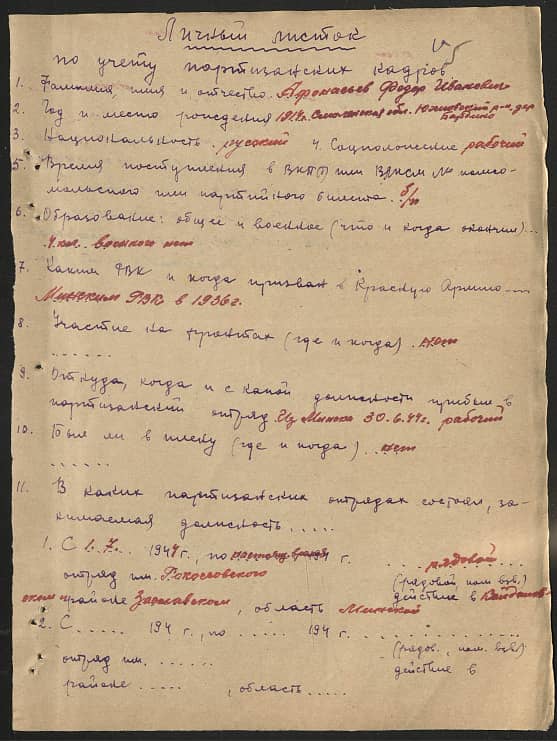 Личный листок
по учету партизанских кадров
1. Фамилия, имя и отчество. Афонасьев Федор Иванович
2. Год и место рождения 1914г. Смоленская обл. р-н. дер.
3. Национальность. русский 4. Соцположение рабочий
5. Время поступления в ВКП или ВЛКСМ № комсо-
мольского или партийного билета. б/п
6. Образование: общее и военное (что и когда окончил)...
4 кл. военного нет
7. Каким РВК и когда призван в Красную Армию....
Минским РВК в 1936г.
8. Участие на фронтах (где и когда). нет
......
9. Откуда, когда и с какой должности прибыл в
партизанский отряд Из Минска 30.6.44г. рабочий
10. Был ли в плену (где и когда)... нет
......
11. В каких партизанских отрядах состоял, за-
нимаемая должность.....
1. С 1.7.. 1944г., по настоящее время 194 г. .. рядовой...
отряд им. Рокосовского (рядовой ком взв.)
районе Заславском, область Минской действие в Койданов-
ском и
2. С..... 194 г., по..... 194 г.
отряд им....... (рядов., ком. взв)
районе....., область..... действие в